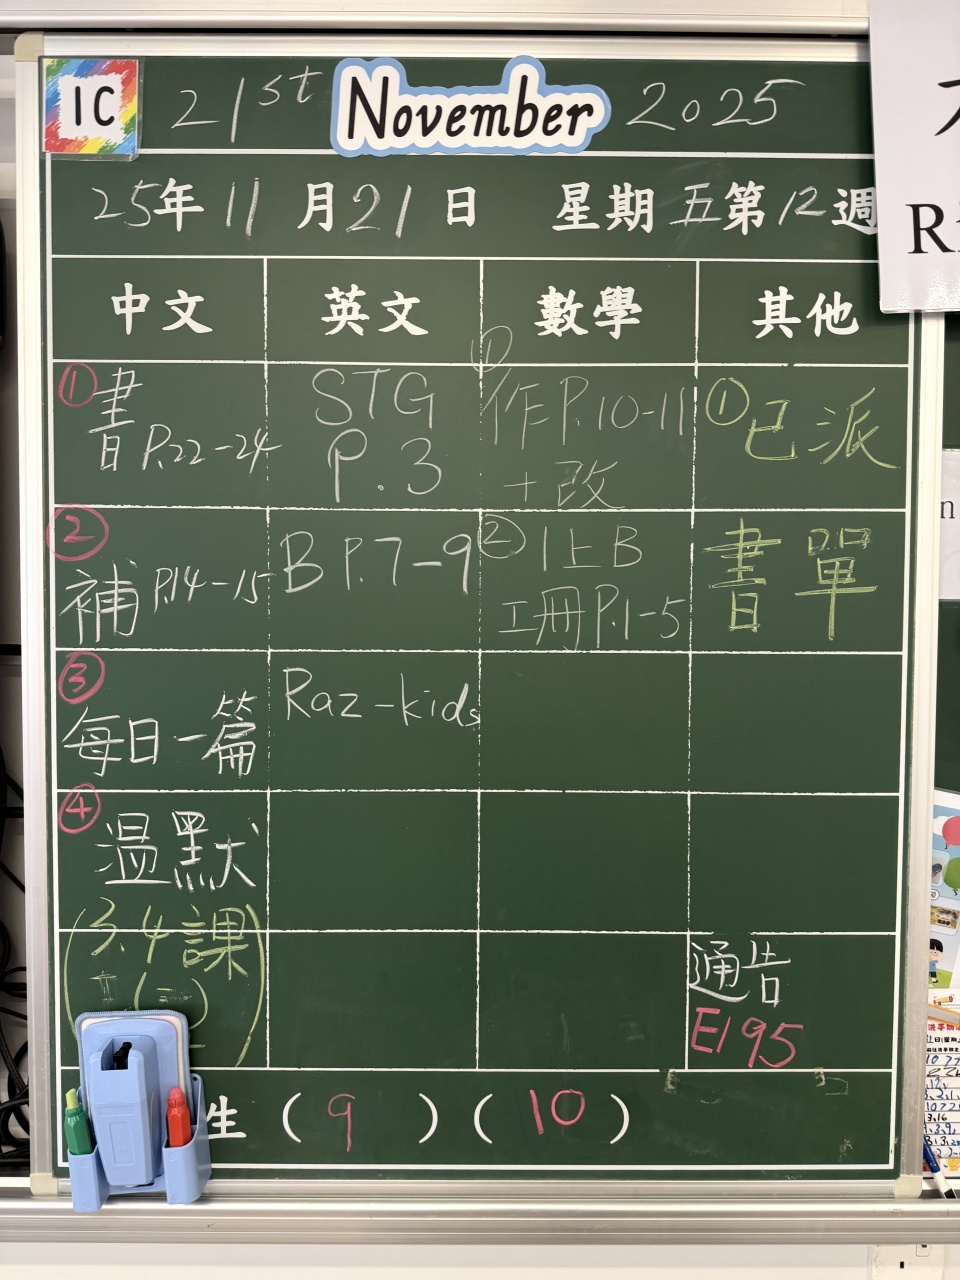 1C 21st November 2025
25年11月21日 星期五第12週
中文 英文 數學 其他
① 書 P.22-24
② 補 P.14-15
③ 每日一篇
④ 溫默
(3.4課
STG P.3
B P.7-9
Raz-kids
① 作 P.10-11
+改
② 1上B
工冊P.1-5
① 已派
書單
通告
E195
生 (9) (10)